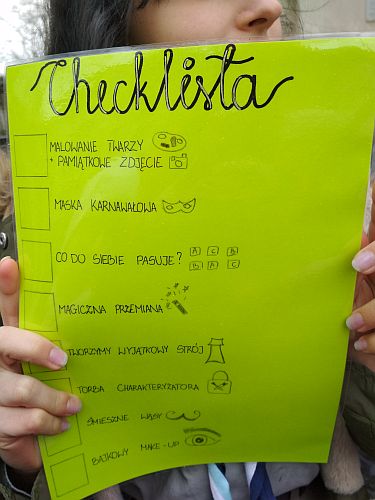 Checklista
MALOWANIE TWARZY
+ PAMIĄTKOWE ZDJĘCIE
MASKA KARNAWAŁOWA
CO DO SIEBIE PASUJE? A C B
B A C
MAGICZNA PRZEMIANA
TWORZYMY WYJĄTKOWY STRÓJ
TORBA CHARAKTERYZATORA
ŚMIESZNE WĄSY
BAJKOWY MAKE-UP